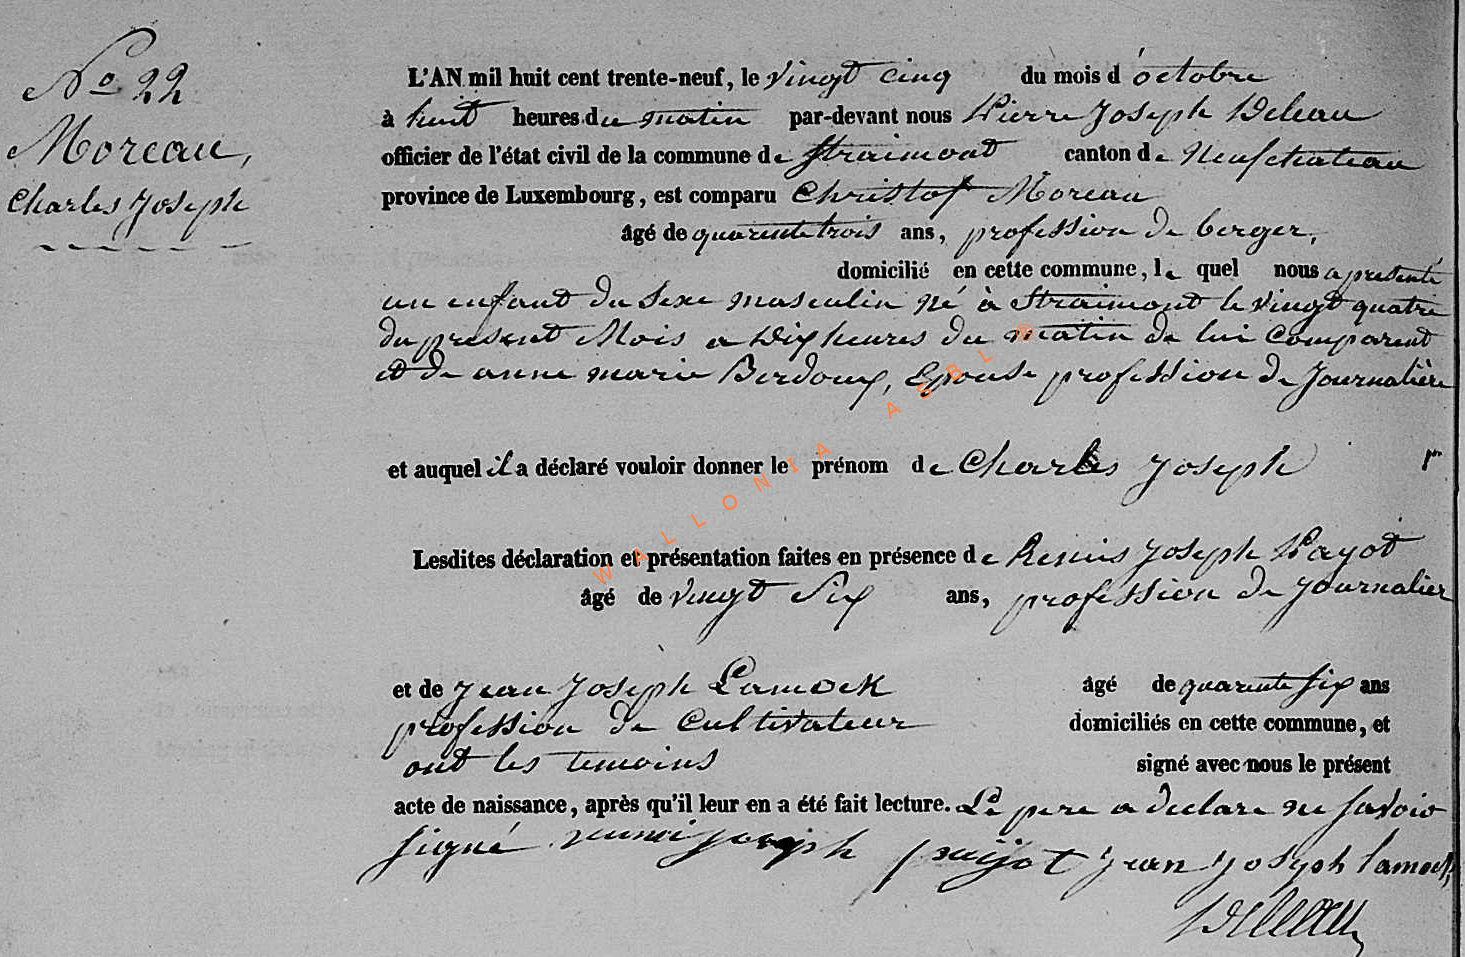 No 22
Moreau,
Charles Joseph
L'AN mil huit cent trente-neuf, le vingt cinq du mois d'octobre
à huit heures du matin par-devant nous Pierre Joseph Deleau
officier de l'état civil de la commune de Straimont canton de Neufchateau
province de Luxembourg, est comparu Christof Moreau
âgé de quarente trois ans, profession de berger,
domicilié en cette commune, le quel nous a presenté
un enfant du sexe masculin né à Straimont le vingt quatre
du present Mois a dix heures du matin de lui Comparent
et de anne marie Berdoux, Epouse profession de Journalière
et auquel il a déclaré vouloir donner le prénom de Charles Joseph
Lesdites déclaration et présentation faites en présence de Remis Joseph Payot
âgé de vingt Six ans, profession de Journalier
et de Jean Joseph Lamock âgé de quarente six ans
profession de Cultivateur domiciliés en cette commune, et
ont les temoins signé avec nous le présent
acte de naissance, après qu'il leur en a été fait lecture. Le pere a declare ne savoir
signé joseph paijot jean joseph lamock
Deleau
WALLONIA ASBL ©